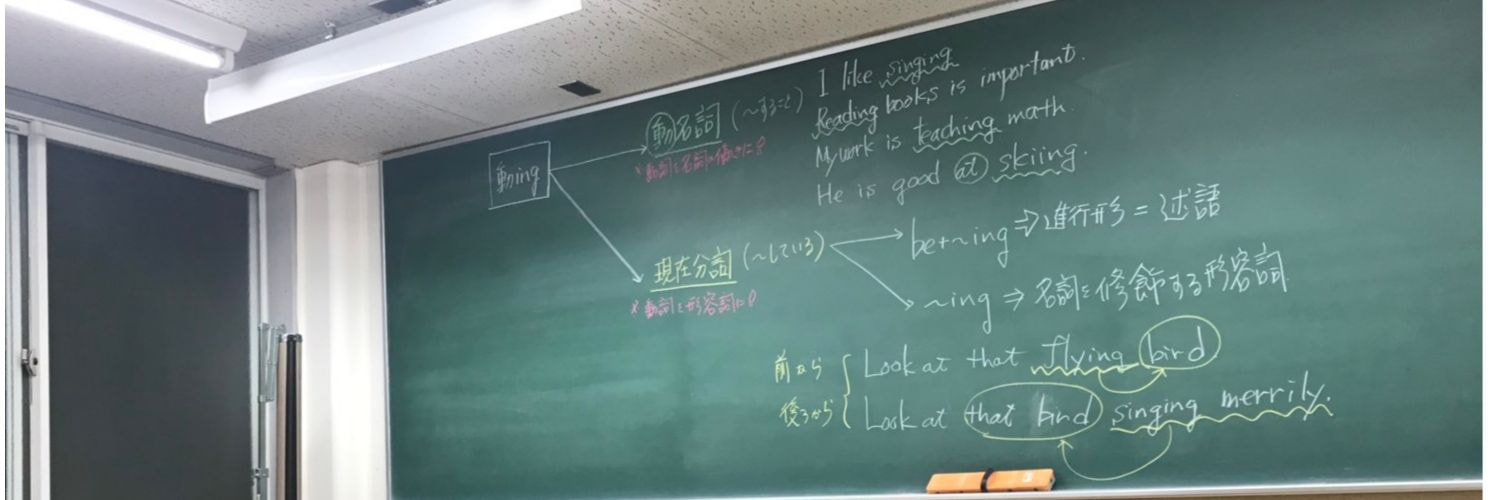 動ing
動名詞 (~すること)
※動詞を名詞の働きに!
I like singing
Reading books is important.
My work is teaching math.
He is good at skiing.
現在分詞 (~している)
※動詞を形容詞に!
be+~ing ⇒ 進行形 = 述語
~ing ⇒ 名詞を修飾する形容詞
前から Look at that flying bird.
後ろから Look at that bird singing merrily.